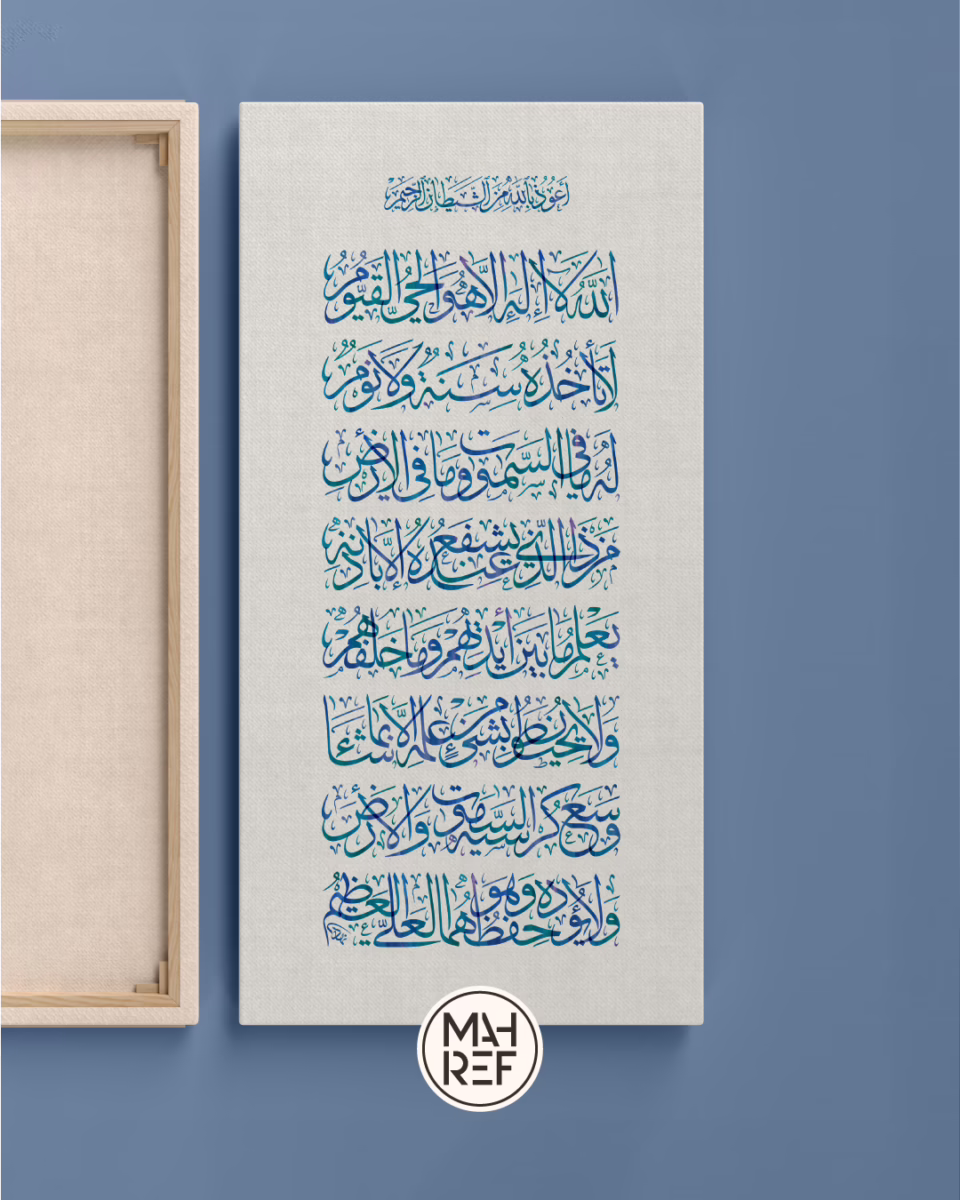 أعوذ بالله من الشيطان الرجيم
الله لا إله إلا هو الحي القيوم
لا تأخذه سنة ولا نوم
له ما في السموت وما في الأرض
من ذا الذي يشفع عنده إلا بإذنه
يعلم ما بين أيديهم وما خلفهم
ولا يحيطون بشيء من علمه إلا بما شاء
وسع كرسيه السموت والأرض
ولا يؤده حفظهما وهو العلي العظيم
MAH
REF